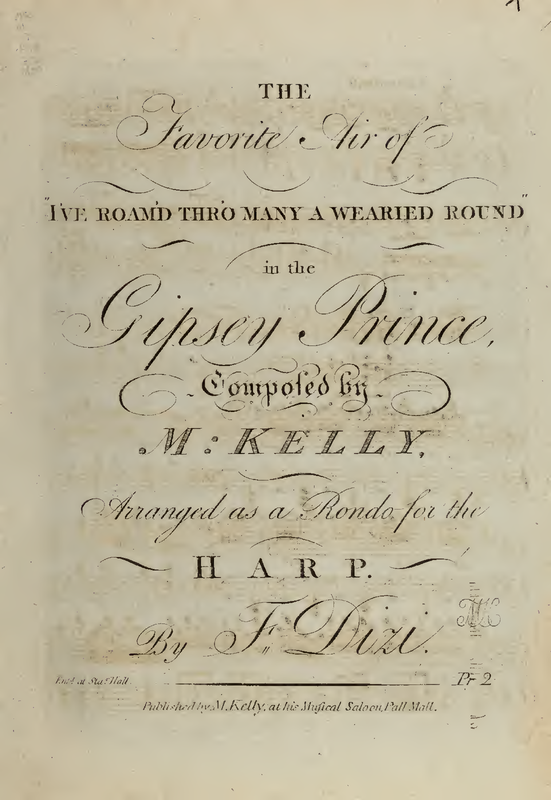 THE
Favorite Air of
"I'VE ROAM'D THRO' MANY A WEARIED ROUND"
in the
Gipsey Prince,
Compoſed by
M: KELLY,
Arranged as a Rondo for the
HARP.
By F. Dizi.
Ent.d at Sta. Hall
Pr 2
Published by M. Kelly, at his Muſical Saloon, Pall Mall.